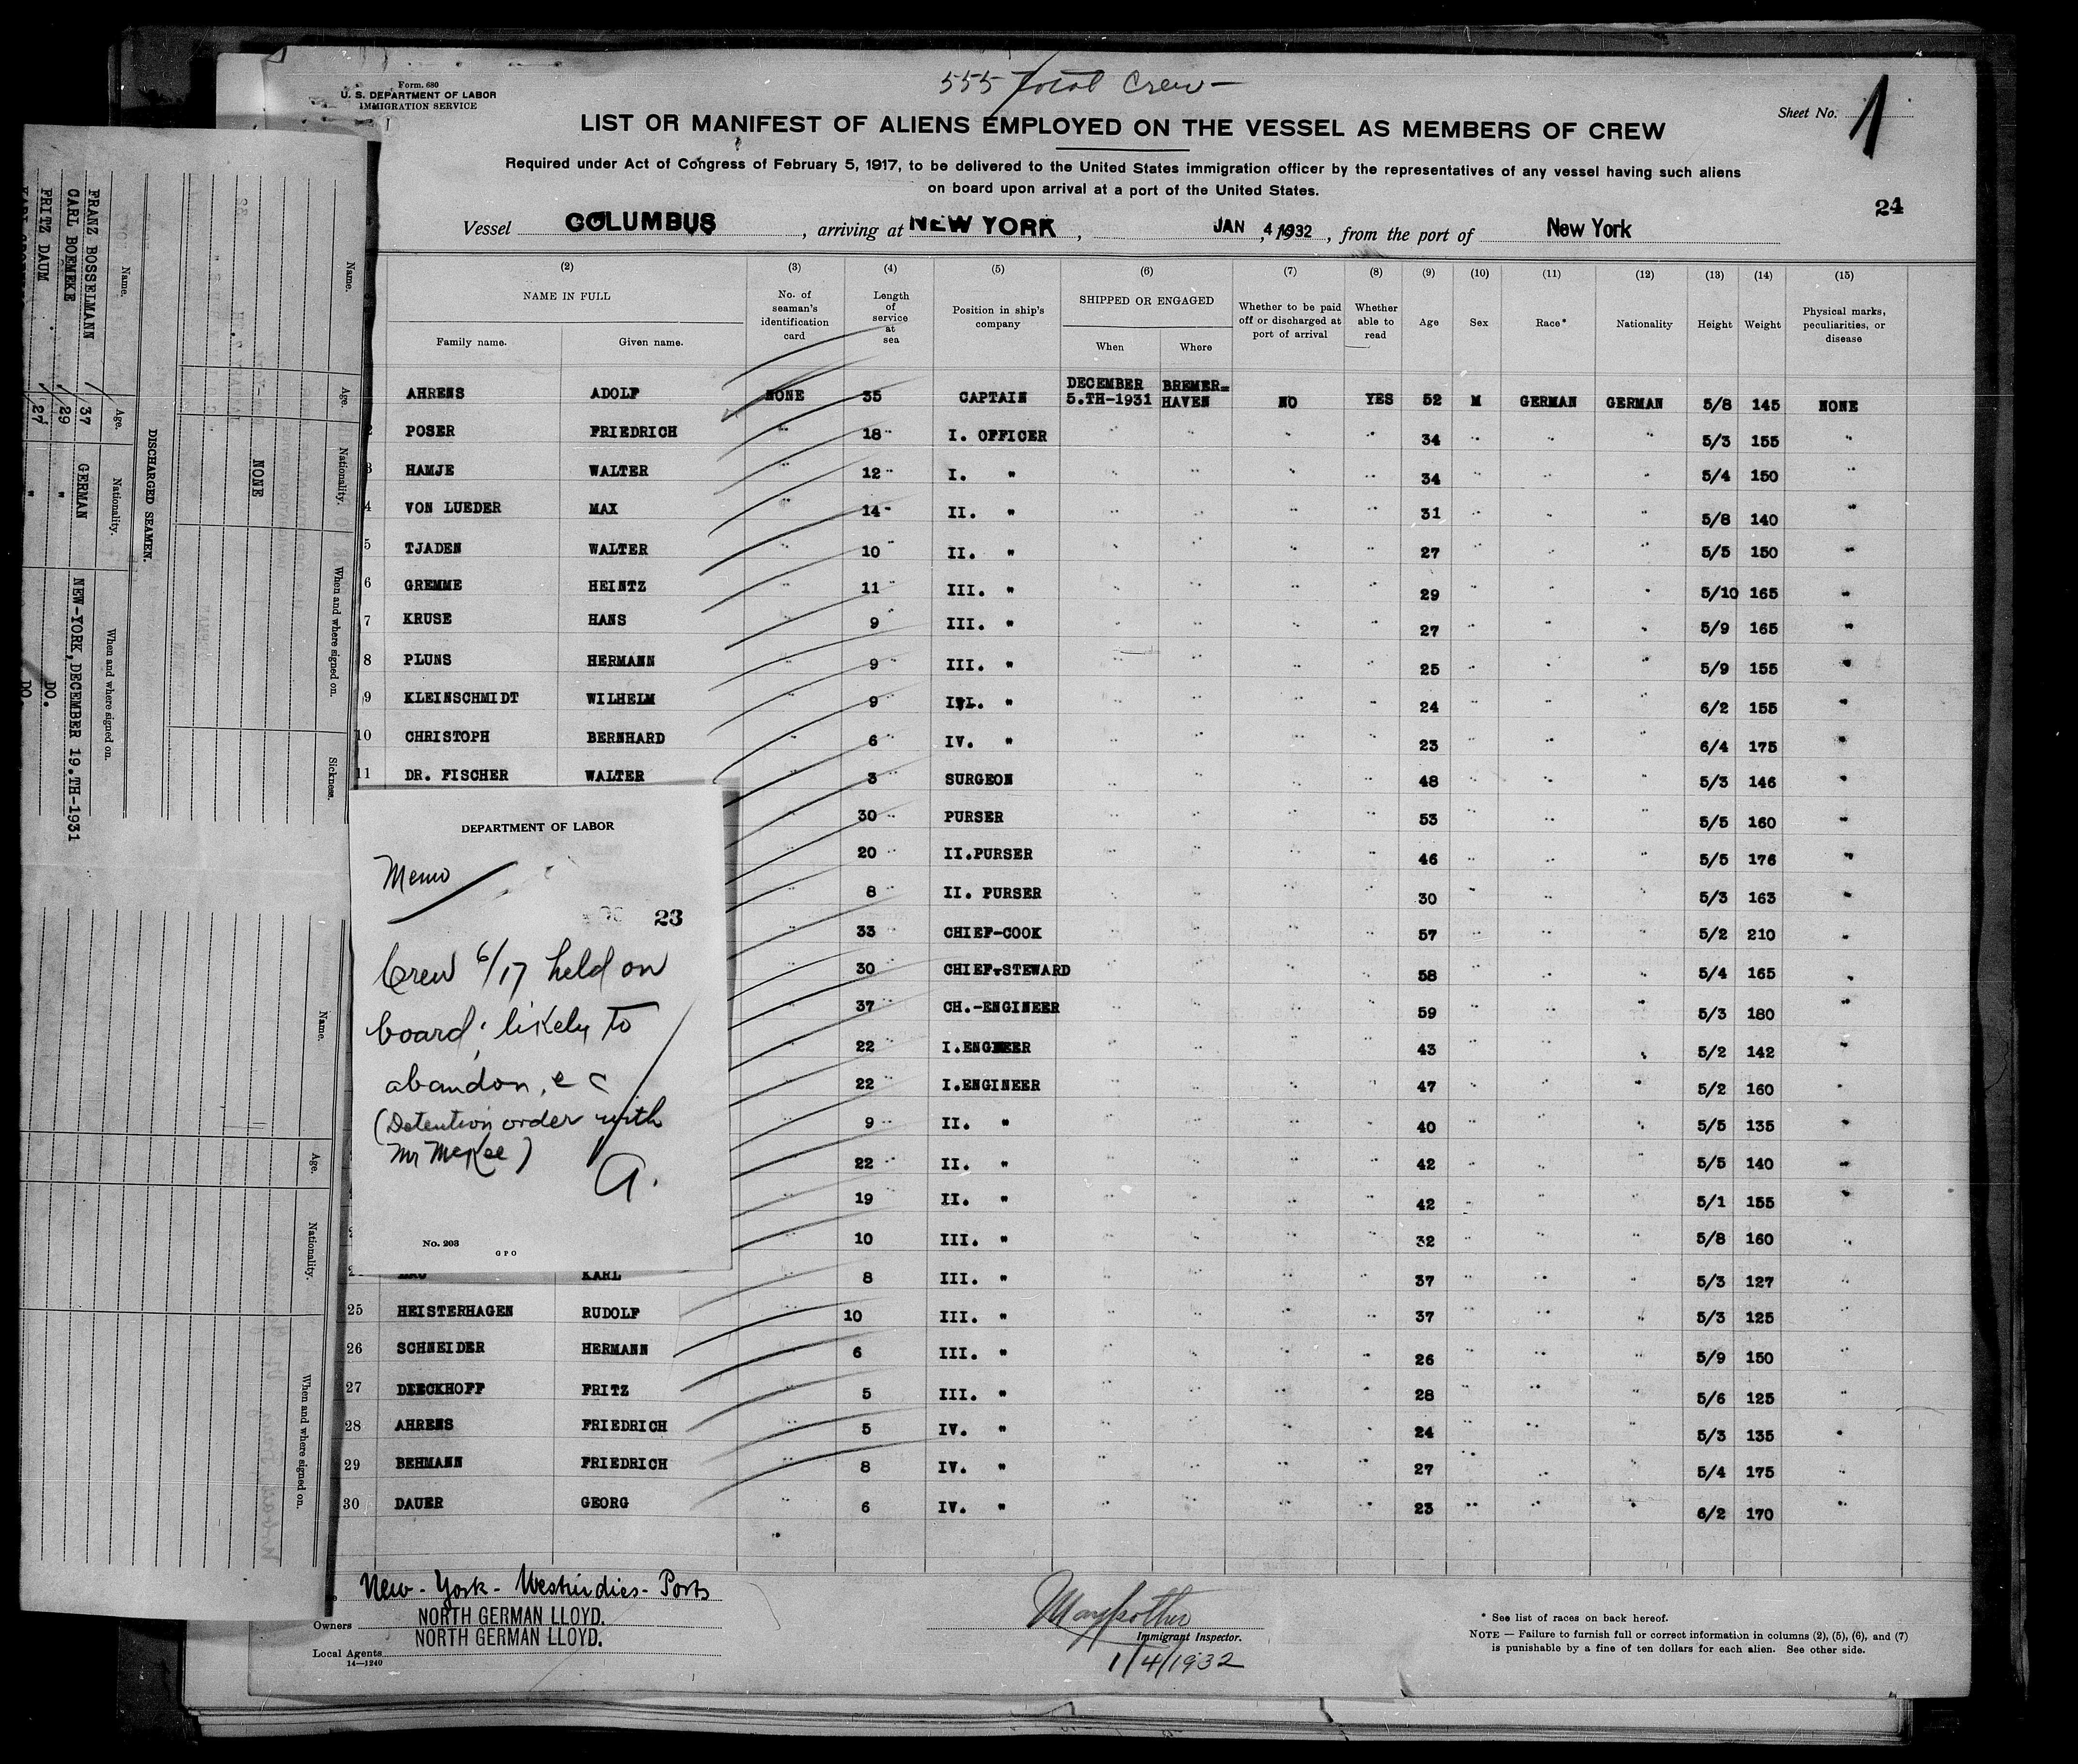 555 Total Crew -
Form 680
U. S. DEPARTMENT OF LABOR
IMMIGRATION SERVICE
Sheet No. 1
LIST OR MANIFEST OF ALIENS EMPLOYED ON THE VESSEL AS MEMBERS OF CREW
Required under Act of Congress of February 5, 1917, to be delivered to the United States immigration officer by the representatives of any vessel having such aliens
on board upon arrival at a port of the United States.
24
Vessel COLUMBUS, arriving at NEW YORK, JAN 4 1932, from the port of New York
(2) (3) (4) (5) (6) (7) (8) (9) (10) (11) (12) (13) (14) (15)
NAME IN FULL No. of seaman's identification card Length of service at sea Position in ship's company SHIPPED OR ENGAGED Whether to be paid off or discharged at port of arrival Whether able to read Age Sex Race* Nationality Height Weight Physical marks, peculiarities, or disease
Family name. Given name. When Where
AHRENS ADOLF NONE 35 CAPTAIN DECEMBER 5.TH-1931 BREMER=HAVEN NO YES 52 M GERMAN GERMAN 5/8 145 NONE
2 POSER FRIEDRICH " 18 " I. OFFICER " " " " 34 " " " 5/3 155 "
3 HAMJE WALTER " 12 " I. " " " " " 34 " " " 5/4 150 "
4 VON LUEDER MAX " 14 " II. " " " " " 31 " " " 5/8 140 "
5 TJADEN WALTER " 10 " II. " " " " " 27 " " " 5/5 150 "
6 GREMME HEINTZ " 11 " III. " " " " " 29 " " " 5/10 165 "
7 KRUSE HANS " 9 " III. " " " " " 27 " " " 5/9 165 "
8 PLUNS HERMANN " 9 " III. " " " " " 25 " " " 5/9 155 "
9 KLEINSCHMIDT WILHELM " 9 " " " " " " 24 " " " 6/2 155 "
10 CHRISTOPH BERNHARD " 6 " IV. " " " " " 23 " " " 6/4 175 "
11 DR. FISCHER WALTER " 3 " SURGEON " " " " 48 " " " 5/3 146 "
" 30 " PURSER " " " " 53 " " " 5/5 160 "
" 20 " II.PURSER " " " " 46 " " " 5/5 176 "
" 8 " II. PURSER " " " " 30 " " " 5/3 163 "
" 33 " CHIEF-COOK " " " " 57 " " " 5/2 210 "
" 30 " CHIEF-STEWARD " " " " 58 " " " 5/4 165 "
" 37 " CH.-ENGINEER " " " " 59 " " " 5/3 180 "
" 22 " I.ENGINEER " " " " 43 " " " 5/2 142 "
" 22 " I.ENGINEER " " " " 47 " " " 5/2 160 "
" 9 " II. " " " " " 40 " " " 5/5 135 "
" 22 " II. " " " " " 42 " " " 5/5 140 "
" 19 " II. " " " " " 42 " " " 5/1 155 "
" 10 " III. " " " " " 32 " " " 5/8 160 "
KARL " 8 III. " " " " " 37 " " " 5/3 127 "
25 HEISTERHAGEN RUDOLF " 10 III. " " " " " 37 " " " 5/3 125 "
26 SCHNEIDER HERMANN " 6 III. " " " " " 26 " " " 5/9 150 "
27 DEECKHOFF FRITZ " 5 III. " " " " " 28 " " " 5/6 125 "
28 AHRENS FRIEDRICH " 5 IV. " " " " " 24 " " " 5/3 135 "
29 BEHMANN FRIEDRICH " 8 IV. " " " " " 27 " " " 5/4 175 "
30 DAUER GEORG " 6 IV. " " " " " 23 " " " 6/2 170 "
DEPARTMENT OF LABOR
Memo
23
Crew 6/17 held on
board; likely to
abandon, e c
(Detention order with
Mr McKee)
A.
No. 203
GPO
New-York-Westindies-Ports
Owners NORTH GERMAN LLOYD.
Local Agents NORTH GERMAN LLOYD.
14—1240
Immigrant Inspector.
1/4/1932
* See list of races on back hereof.
NOTE — Failure to furnish full or correct information in columns (2), (5), (6), and (7)
is punishable by a fine of ten dollars for each alien. See other side.
Name. Age. Nationality. When and where signed on. Sickness.
NONE
DISCHARGED SEAMEN.
Name. Age. Nationality. When and where signed on.
FRANZ BOSSELMANN 37 GERMAN NEW-YORK, DECEMBER 19.TH-1931
CARL BOEMEKE 29 " DO.
FRITZ DAUM 27 " DO.
Name. Age. Nationality. When and where signed on.